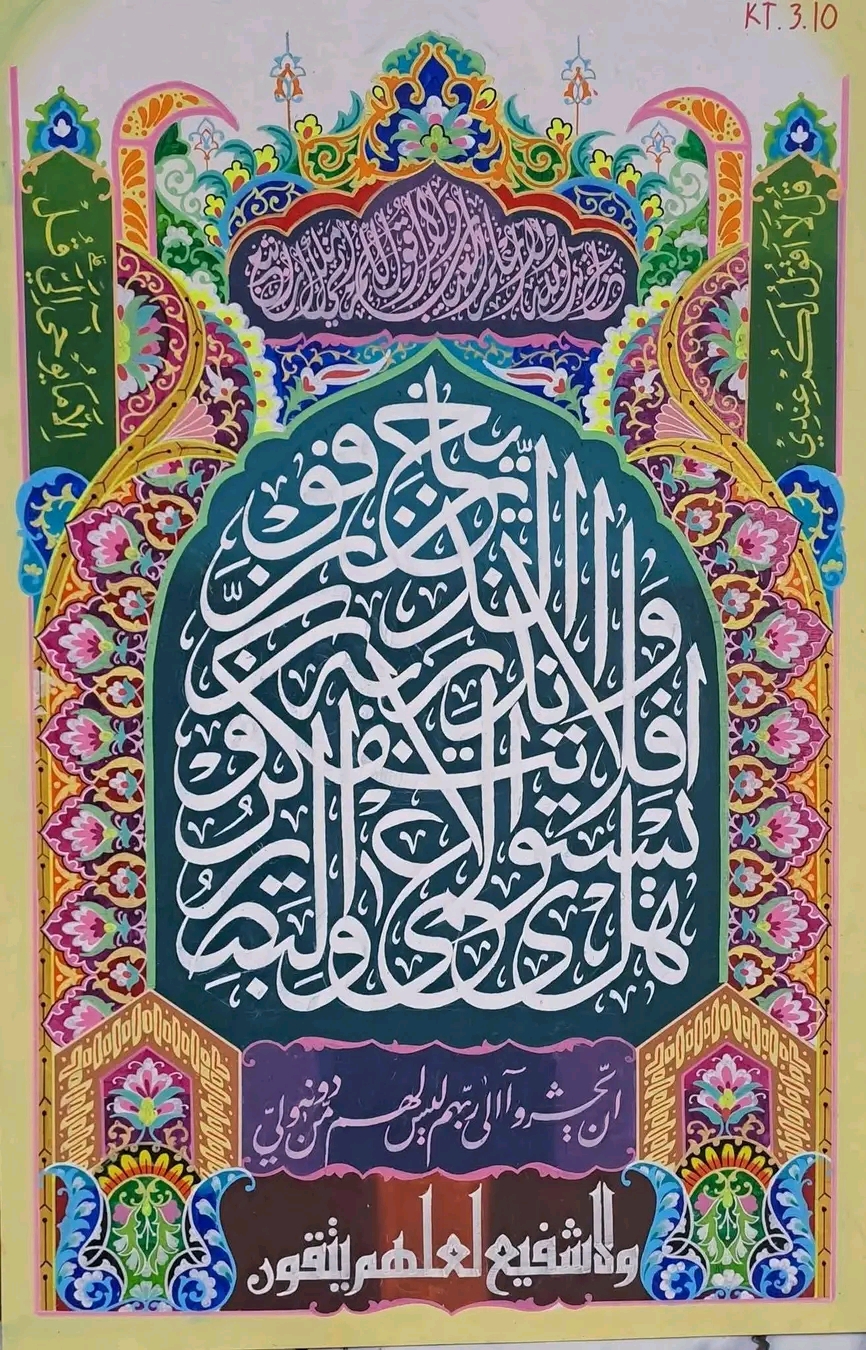 KT. 3.10
قُلْ لَّآ اَقُوْلُ لَكُمْ عِنْدِيْ
خزائن الله ولا اعلم الغيب ولا اقول لكم اني ملك ان اتبع
اِلَّا مَا يُوْحٰٓى اِلَيَّ قُلْ
هل يستوى الاعمى والبصير
افلا تتفكرون
وانذر به الذين يخافون
ان يّحشروآ الى ربّهم ليس لهم مّن دونه وليّ
ولا شفيع لعلهم يتقون